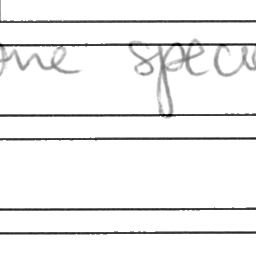 one speci